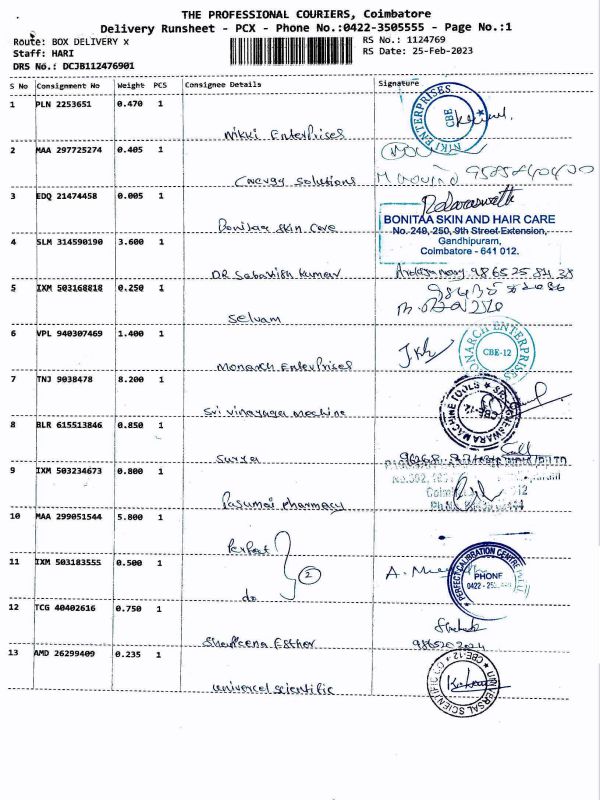 THE PROFESSIONAL COURIERS, Coimbatore
Delivery Runsheet - PCX - Phone No.:0422-3505555 - Page No.:1
Route: BOX DELIVERY x
RS No.: 1124769
Staff: HARI
RS Date: 25-Feb-2023
DRS No.: DCJB112476901
S No Consignment No Weight PCS Consignee Details Signature
1 PLN 2253651 0.470 1
Nikki Enterprises
NIKI ENTERPRISES CBE
2 MAA 297725274 0.405 1
Energy Solutions
3 EDQ 21474458 0.005 1
Bonitaa Skin Care
BONITAA SKIN AND HAIR CARE
No. 249, 250, 9th Street Extension,
Gandhipuram,
Coimbatore - 641 012.
4 SLM 314590190 3.600 1
DR Sabarish Kumar
5 IXM 503168818 0.250 1
Selvam
6 VPL 940307469 1.400 1
Monarch Enterprises
MONARCH ENTERPRISES CBE-12
7 TNJ 9038478 8.200 1
Sri Vinayaga Machine
MACHINE TOOLS CBE-12
8 BLR 615513846 0.850 1
Surya
9 IXM 503234673 0.800 1
Pasumai Pharmacy
10 MAA 299051544 5.800 1
Perfect
2
11 IXM 503183555 0.500 1
do
A.
PERFECT CALIBRATION CENTRE
PHONE
12 TCG 40402616 0.750 1
Esther
13 AMD 26299409 0.235 1
Universel Scientific
UNIVERSAL SCIENTIFIC CO CBE-12